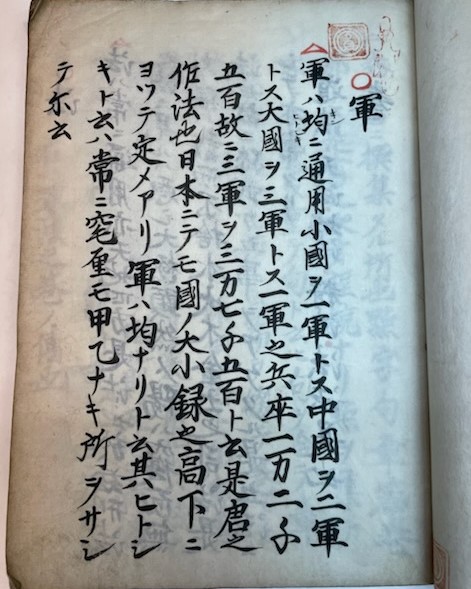 軍
軍ハ均ニ通用小國ヲ一軍トス中國ヲ二軍
トス大國ヲ三軍トス一軍之兵卒一万二千
五百故ニ三軍ヲ三万七千五百ト云是唐之
作法也日本ニテモ國ノ大小録之高下ニ
ヨツテ定メアリ軍ハ均ナリト云其ヒトシ
キト云ハ常ニ毫厘モ甲乙ナキ所ヲサシ
テ尓云